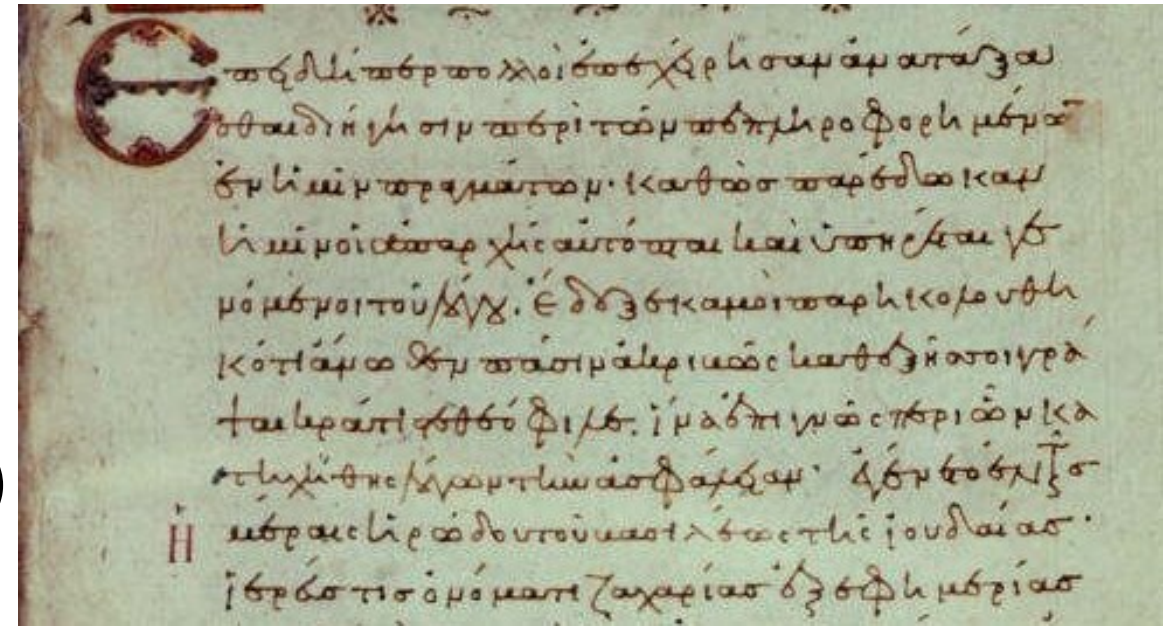 Ἐπειδήπερ πολλοὶ ἐπεχείρησαν ἀνατάξα
σθαι διήγησιν περὶ τῶν πεπληροφορημένω
ἐν ἡμῖν πραγμάτων· καθὼσ παρέδωκαν
ἡμῖν οἱ ἀπαρχῆς αὐτόπται καὶ ὑπηρέται γε
νόμενοι τοῦ λόγου. Ἔδοξε καμοὶ παρηκολουθη
κότι ἄνωθεν πᾶσιν ἀκριβῶς καθεξῆσ σοι γρά
ψαι κράτιστε θεόφιλε. ἵνα ἐπιγνῶς περὶ ὧν κα
τηχήθης λόγων τὴν ἀσφάλειαν· Ἐγένετο ἐν ταῖσ
ἡμέραις ἡρώδου τοῦ βασιλέως τῆς ἰουδαίασ·
ἱερεύσ τισ ὀνόματι ζαχαρίασ ἐξ ἐφημερίασ